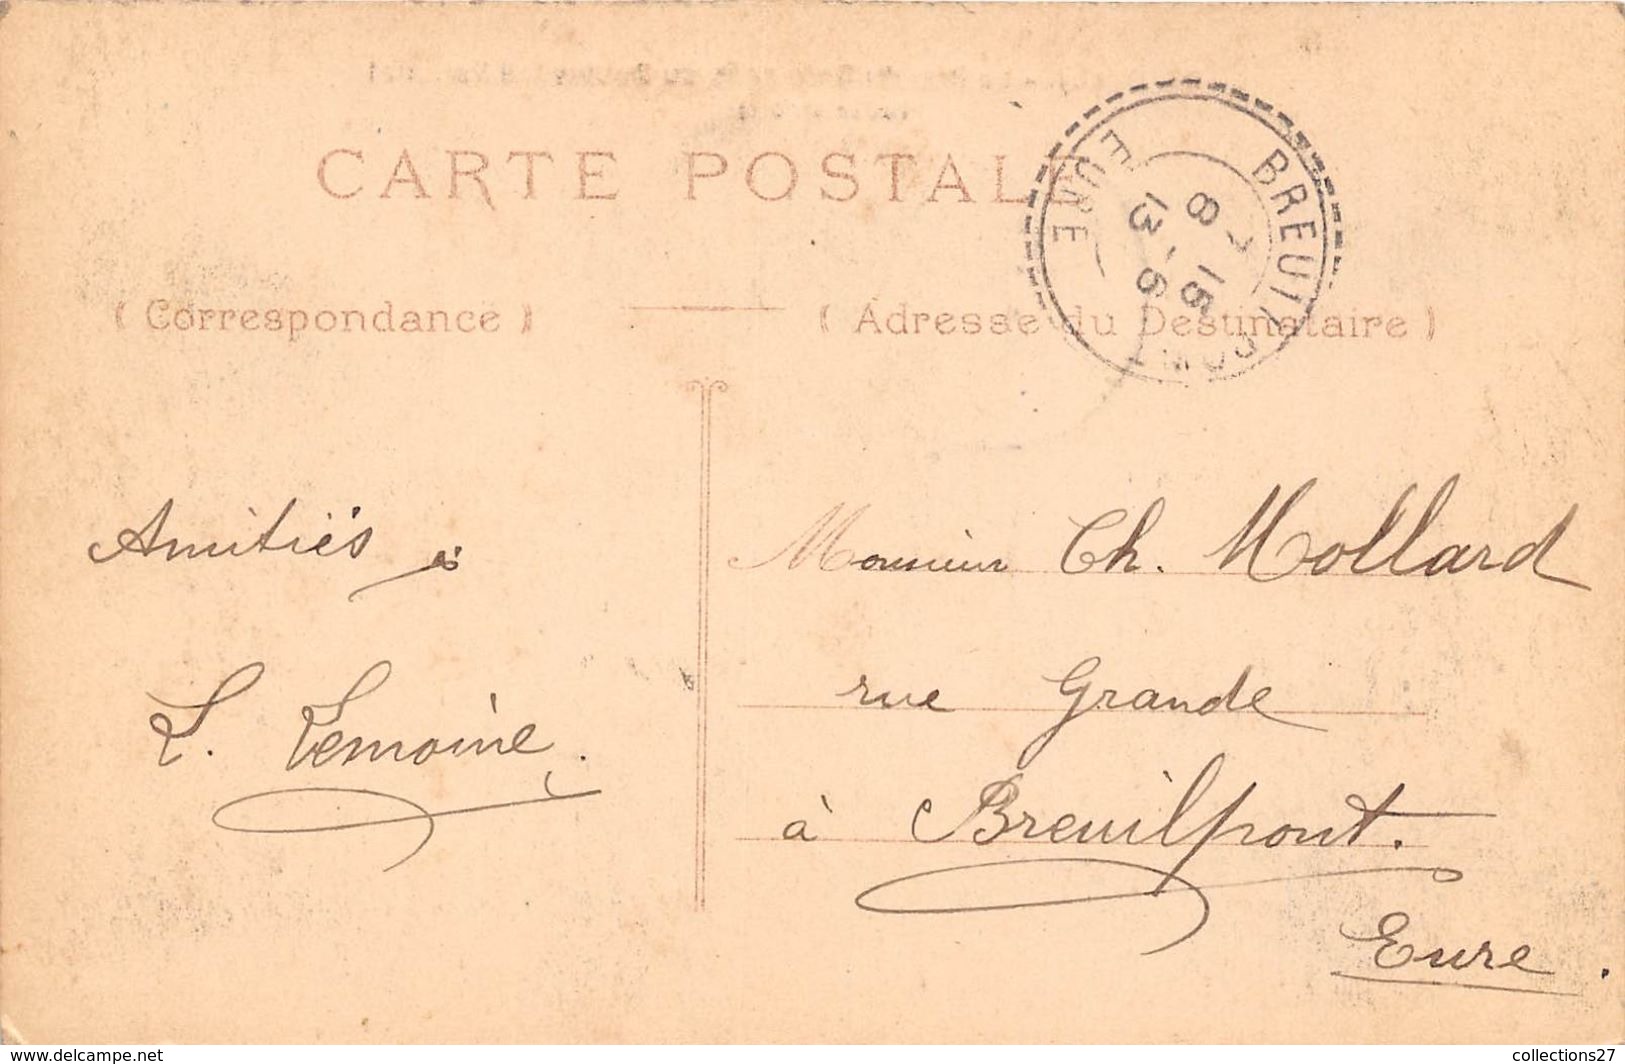 CARTE POSTALE
( Correspondance )
( Adresse du Destinataire )
BREUILPONT
EURE
8
15 - 6
13
Amitiés
L. Lemoine.
Monsieur Ch. Mollard
rue Grande
à Breuilpont.
Eure.
www.delcampe.net
collections27